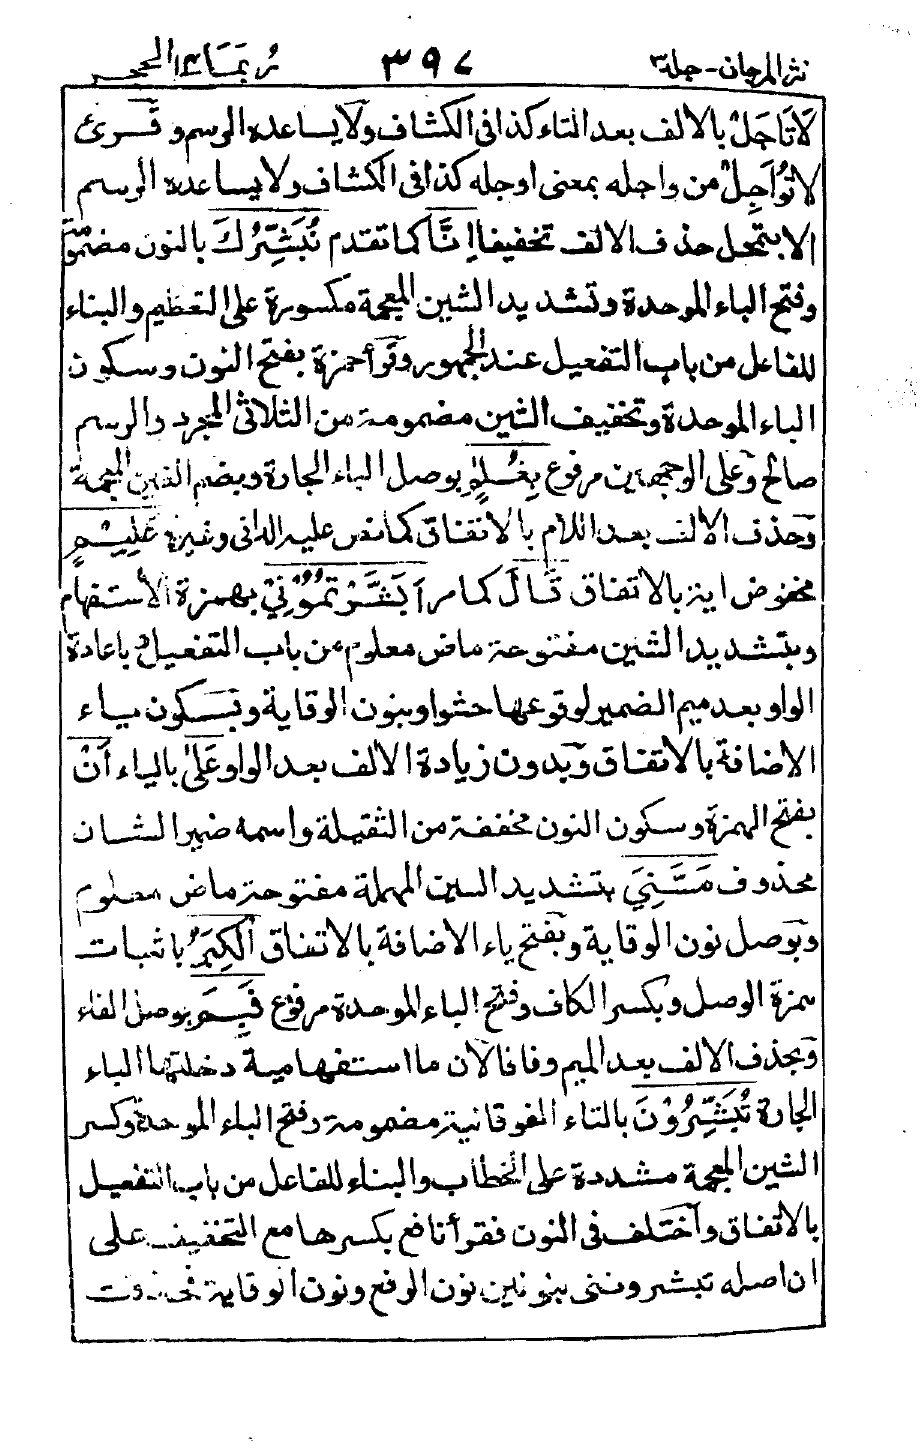 نثر المرجان - جلد٣ ٣٩٧ ربما١٤ الحجر
لَا تَاجَلْ بالالف بعد التاء كذا فى الكشاف ولا يساعده الرسم وقرئ
لا تُوَاجِلْ من واجله بمعنى اوجله كذا فى الكشاف ولا يساعده الرسم
الا بتمحل حذف الالف تخفيفا اِنَّا كما تقدم نُبَشِّرُكَ بالنون مضمومة
وفتح الباء الموحدة وتشديد الشين المعجمة مكسورة على التعظيم والبناء
للفاعل من باب التفعيل عند الجمهور وقرأ حمزة بفتح النون وسكون
الباء الموحدة وتخفيف الشين مضمومة من الثلاثى المجرد والرسم
صالح وعلى الوجهين مرفوع بِغُلٰمٍ بوصل الباء الجارة وبضم الغين المعجمة
وحذف الالف بعد اللام بالاتفاق كما نص عليه الدانى وغيره عَلِيْمٍ
مخفوض اية بالاتفاق قَالَ كما مر اَبَشَّرْتُمُوْنِيْ بهمزة الاستفهام
وبتشديد الشين مفتوحة ماض معلوم من باب التفعيل وباعادة
الواو بعد ميم الضمير لوقوعها حشوا وبنون الوقاية وبسكون ياء
الاضافة بالاتفاق وبدون زيادة الالف بعد الواو عَلٰى بالياء اَنْ
بفتح الهمزة وسكون النون مخففة من الثقيلة واسمه ضمير الشان
محذوف مَسَّنِيَ بتشديد السين المهملة مفتوحة ماض معلوم
وبوصل نون الوقاية وبفتح ياء الاضافة بالاتفاق الْكِبَرُ باثبات
همزة الوصل وبكسر الكاف وفتح الباء الموحدة مرفوع فَبِمَ بوصل الفاء
وبحذف الالف بعد الميم وفاقا لان ما استفهامية دخلتها الباء
الجارة تُبَشِّرُوْنَ بالتاء الفوقانية مضمومة وفتح الباء الموحدة وكسر
الشين المعجمة مشددة على الخطاب والبناء للفاعل من باب التفعيل
بالاتفاق واختلف فى النون فقرأ نافع بكسرها مع التخفيف على
ان اصله تبشروننى بنونين نون الرفع ونون الوقاية فحذفت